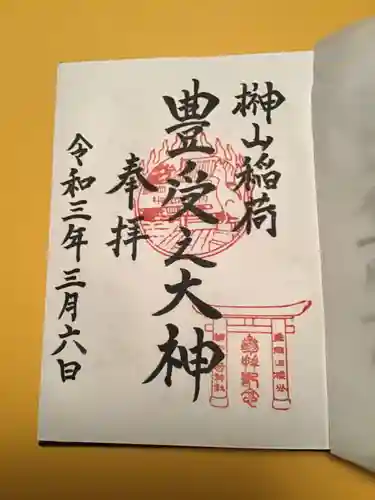 榊山稲荷
豊受之大神
奉拝
令和三年三月六日